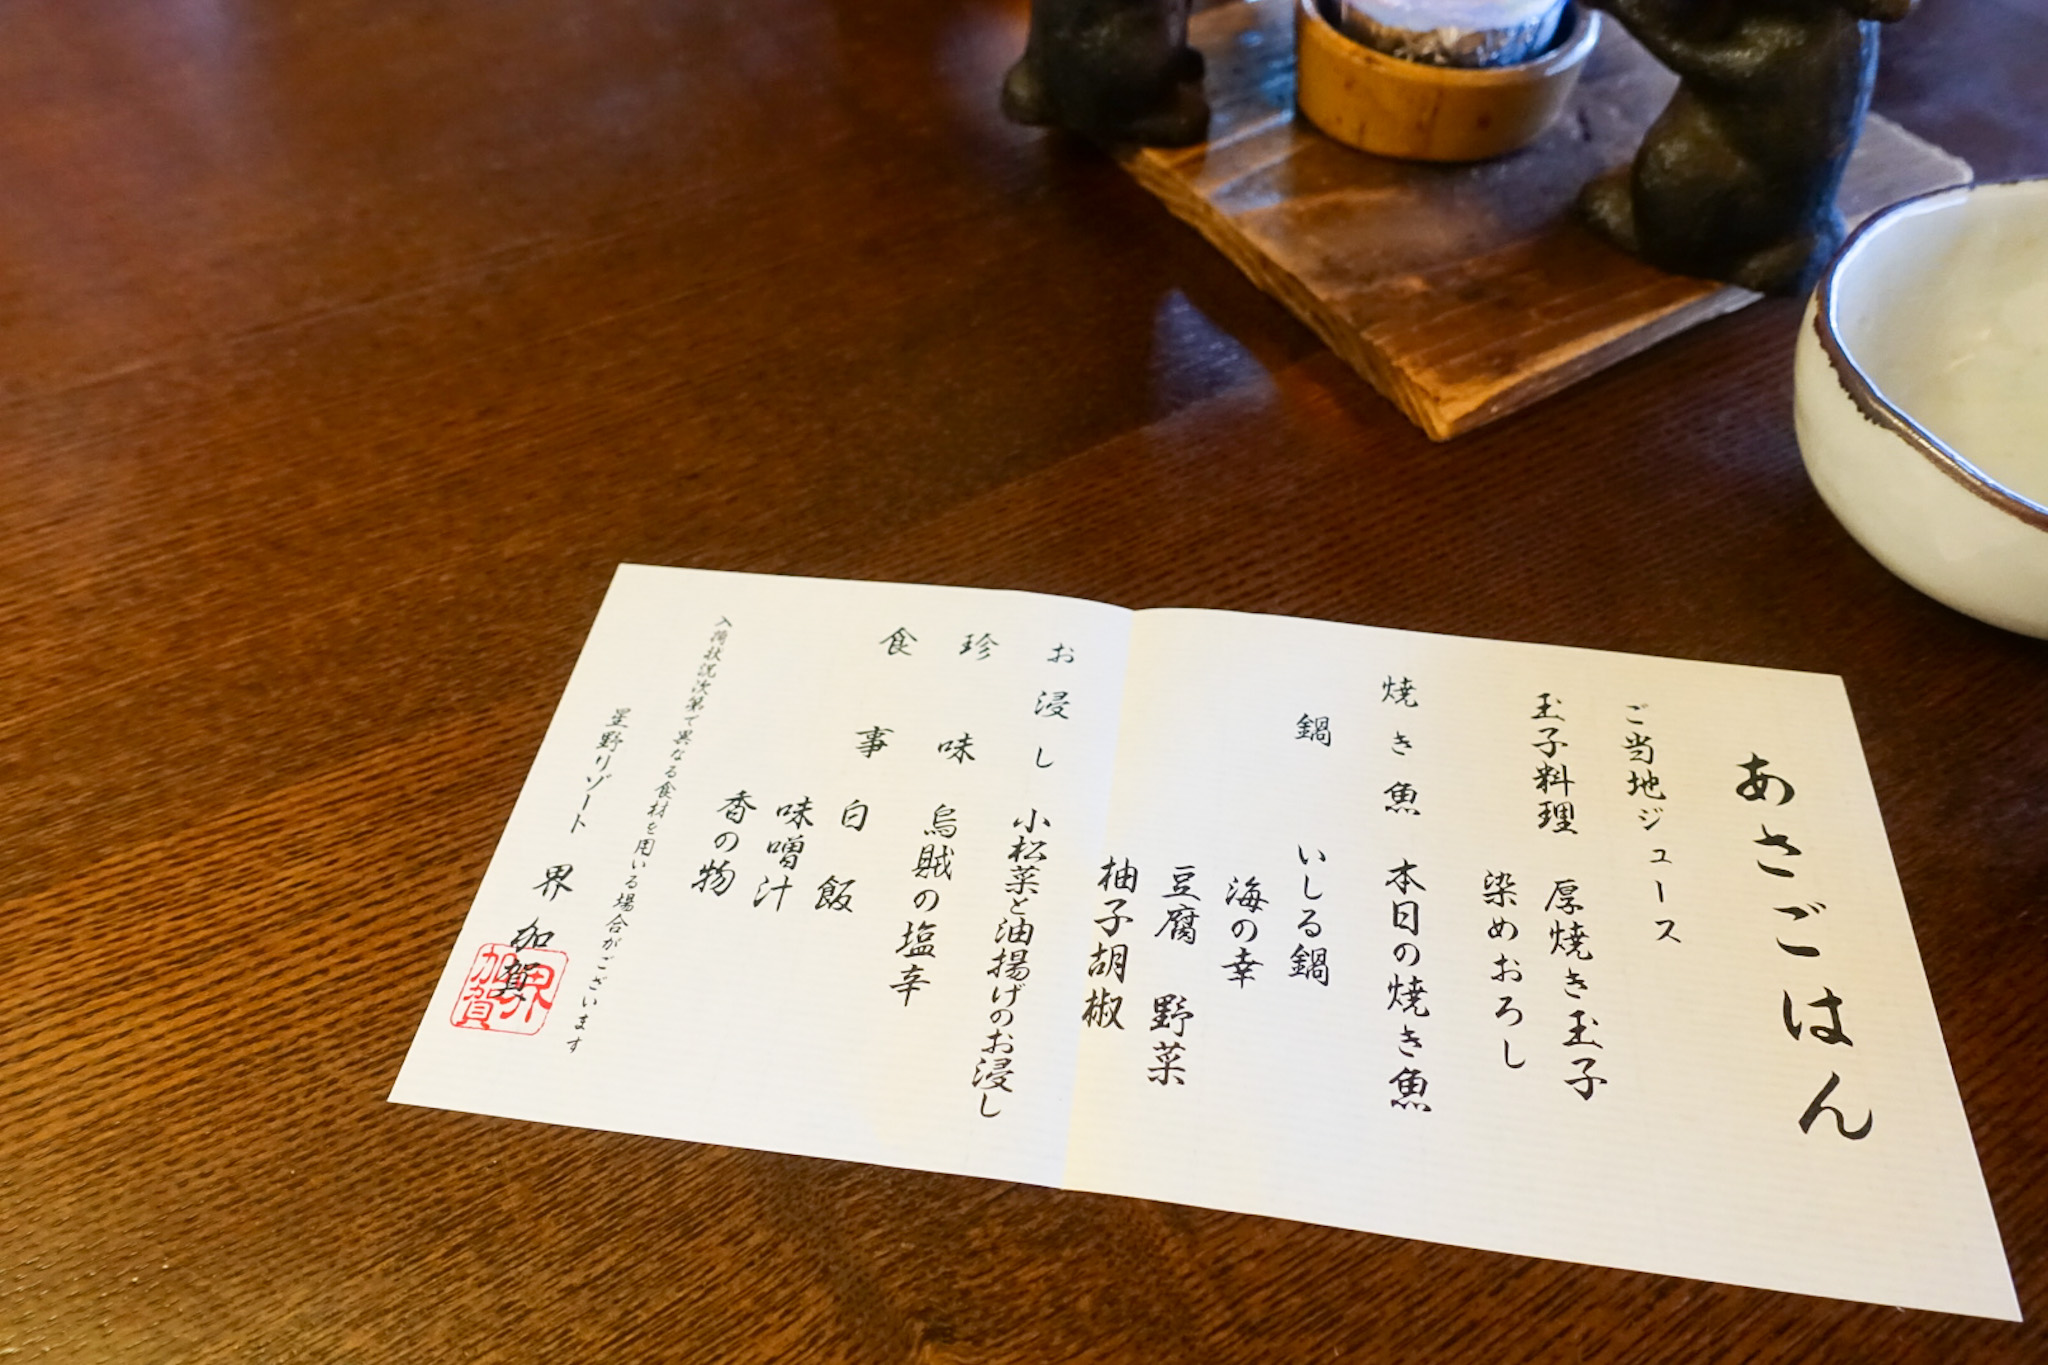 あさごはん
ご当地ジュース
玉子料理 厚焼き玉子
染めおろし
焼き魚 本日の焼き魚
鍋 いしる鍋
海の幸
豆腐 野菜
柚子胡椒
お浸し 小松菜と油揚げのお浸し
珍味 烏賊の塩辛
食事 白飯
味噌汁
香の物
入荷状況次第で異なる食材を用いる場合がございます
星野リゾート 界 加賀
界
加賀